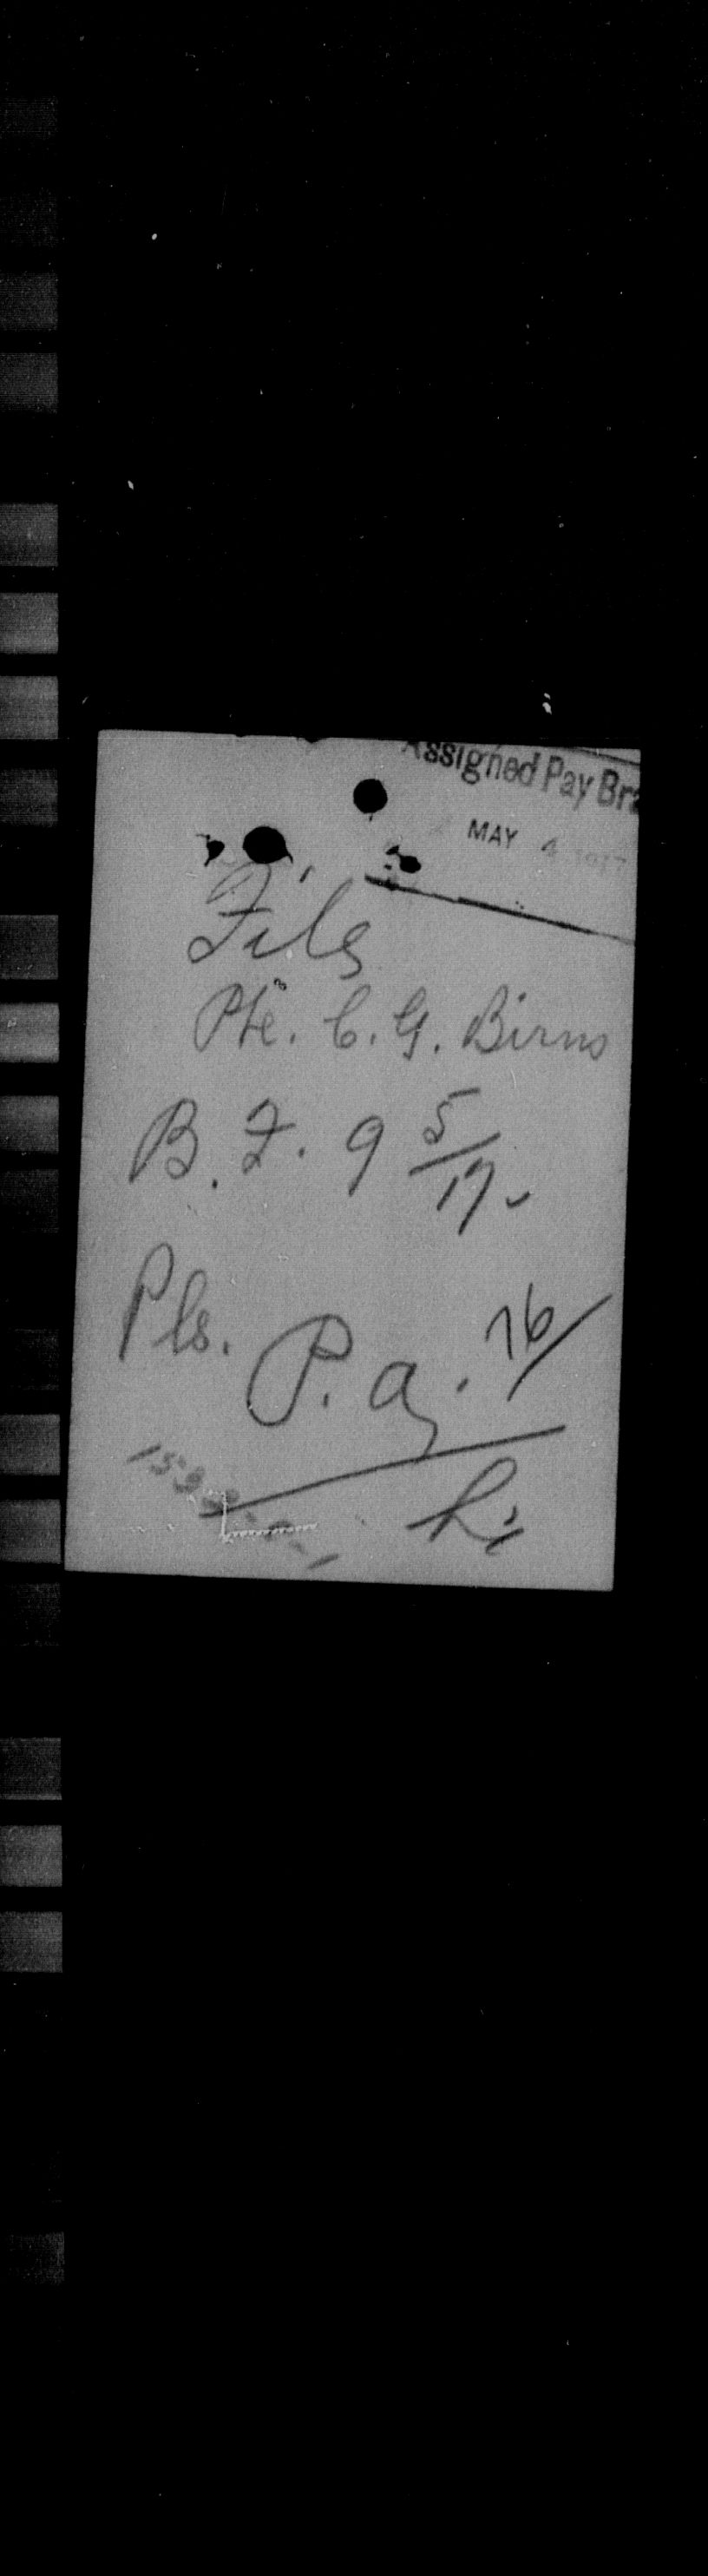 Assigned Pay Bra
MAY 4 1917
File
Pte. C. G. Birns
B. F. 9 5/17
Pls.
P. a. 76/